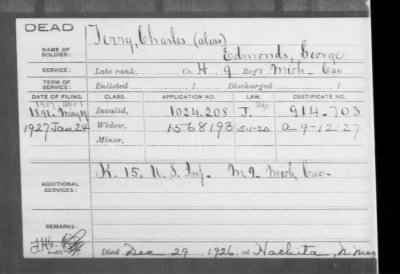 DEAD
NAME OF SOLDIER: Terry, Charles (alias)
Edmonds, George
SERVICE: Late rank, Co. H, 9 Reg't Mich. Cav
TERM OF SERVICE: Enlisted , 1 Discharged , 1
DATE OF FILING. CLASS. APPLICATION NO. LAW. CERTIFICATE NO.
1907
1891 May Invalid, 1024.208 J. Age 914-703
1927 Jan 24 Widow, 1568193 5-1-20 a 9-12-27
Minor,
ADDITIONAL SERVICES: K. 15. U.S. Inf. M. 9 Mich. Cav.
REMARKS:
Died Dec 29, 1926, at Hachita, N Mex